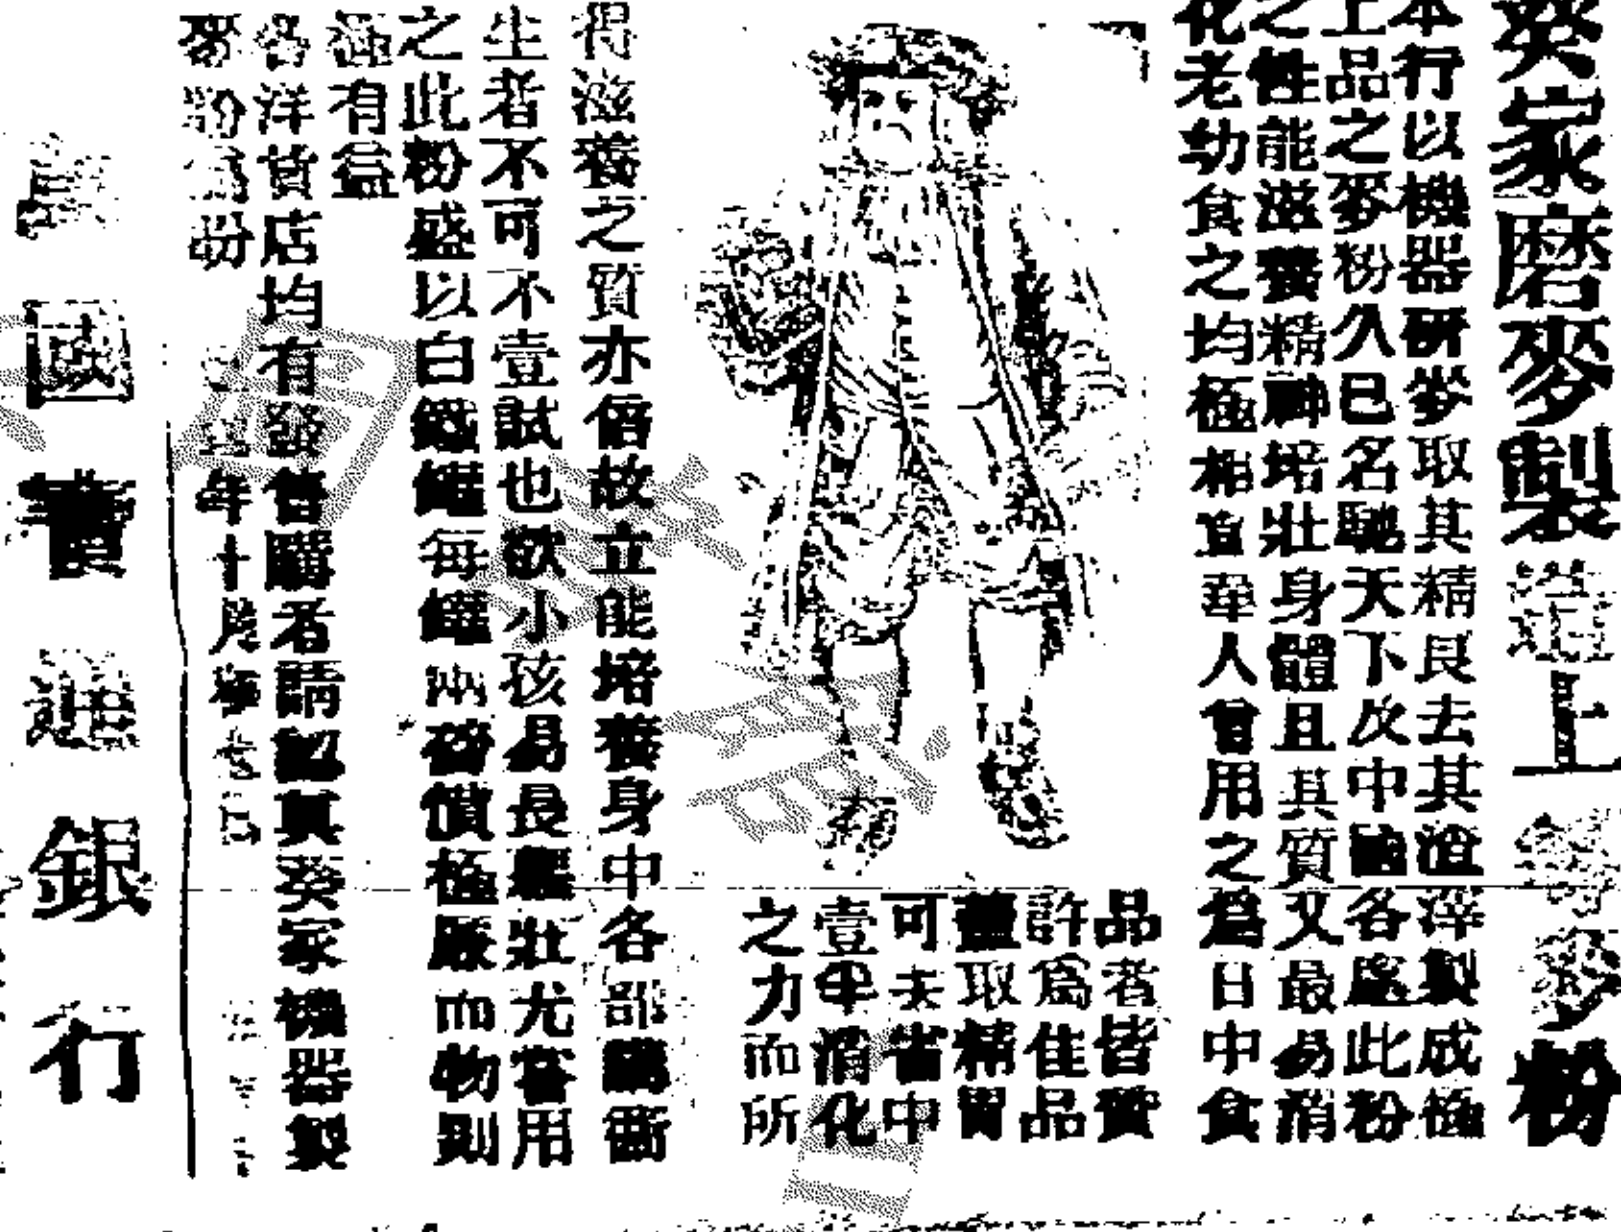 葵家磨麥製造上等麥粉
本行以機器研麥取其精良去其渣滓製成極
上品之麥粉久已名馳天下及中國各處此粉
之性能滋養精神培壯身體且其質又最易消
化老幼食之均極相宜華人曾用之爲日中食
品者皆贊
許爲佳品
蓋取精胃
可夫省中
壹半消化
之力而所
得滋養之質亦倍故立能培養身中各部購衛
生者不可不壹試也欲小孩易長龐壯尤當用
之此粉盛以白鐵罐每罐兩磅價極廉而物則
極有益
各洋貨店均有發售購者請認真葵家機器製
麥粉爲
年十月
國寶通銀行